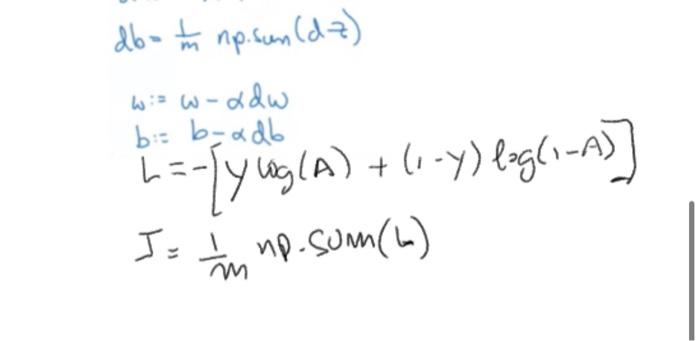 db = 1/m np.sum(dz)
w := w - αdw
b := b - αdb
L = -[y log(A) + (1-y) log(1-A)]
J = 1/m np.sum(L)